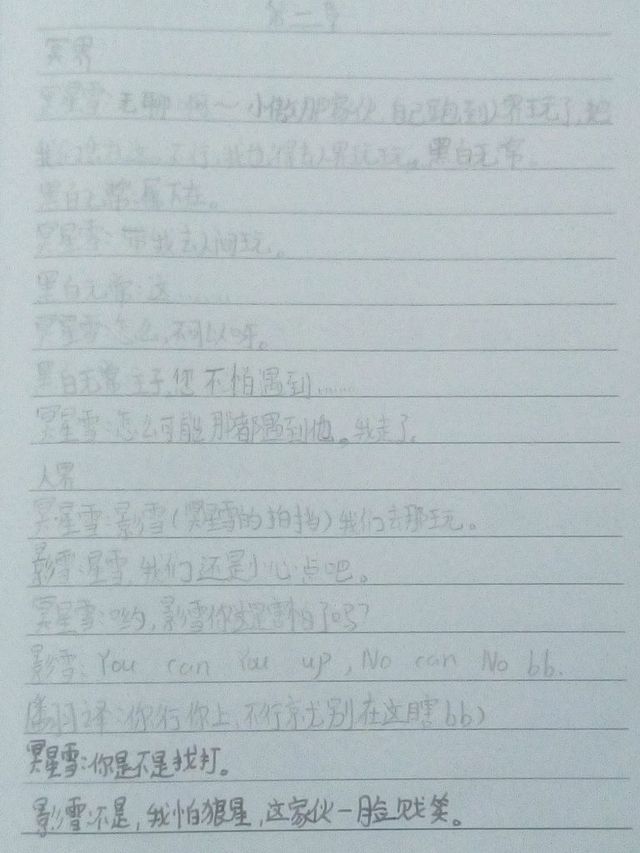 第二章
冥界
冥星雪:无聊啊～小傲那家伙,自己跑到人界玩了,把
我们忘了,不行,我也得去人界玩玩。黑白无常。
黑白无常:属下在。
冥星雪:带我去人间玩。
黑白无常:这……
冥星雪:怎么,不可以吗。
黑白无常:主子,您不怕遇到……
冥星雪:怎么可能那都遇到他。我走了。
人界
冥星雪:影雪(冥星雪的拍挡)我们去那玩。
影雪:星雪,我们还是小心点吧。
冥星雪:哟,影雪你是害怕了吗?
影雪:You can You up,No can No bb.
(翻译:你行你上,不行就别在这瞎bb)
冥星雪:你是不是找打。
影雪:不是,我怕狼星,这家伙一脸贱笑。